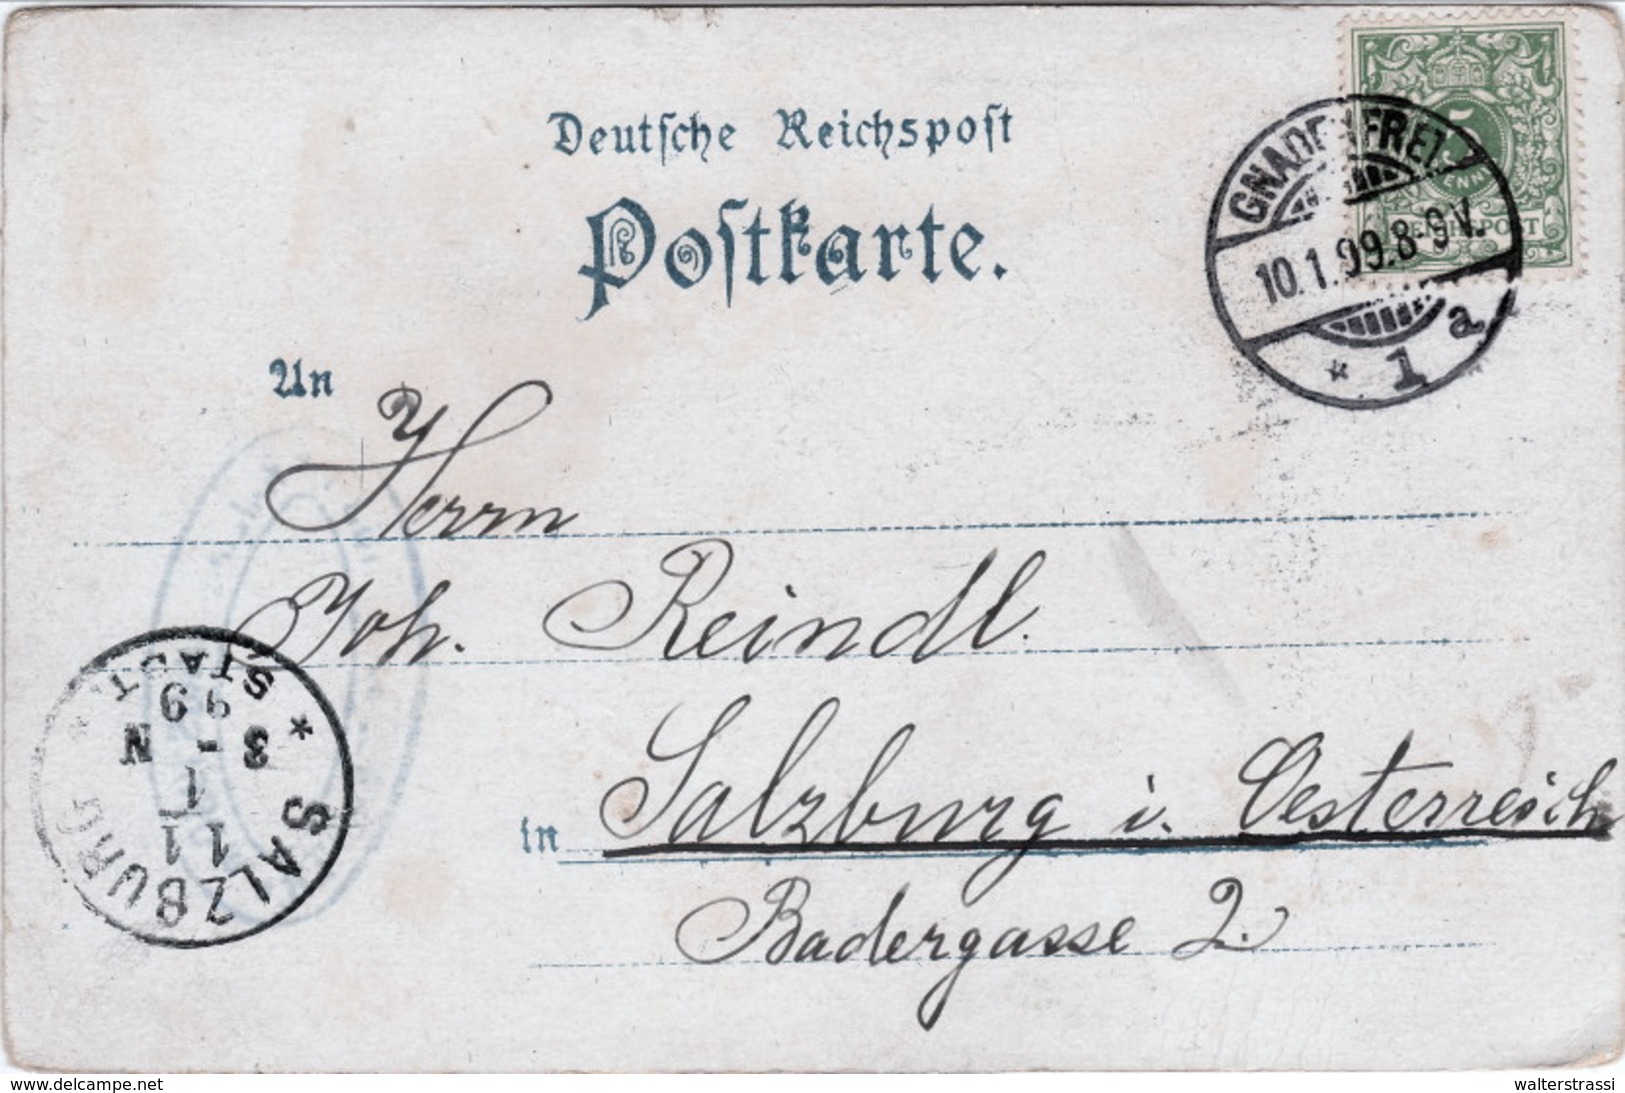 Deutsche Reichspost
Postkarte.
GNADENFREI
10.1.99.8-9V.
* 1 a
5
REICHSPOST
An
Herrn
Joh. Reindl.
in Salzburg i. Oesterreich
Badergasse 2.
* SALZBURG *
STADT
11
1
3 - N
99
delcampe.net
walterstrassi